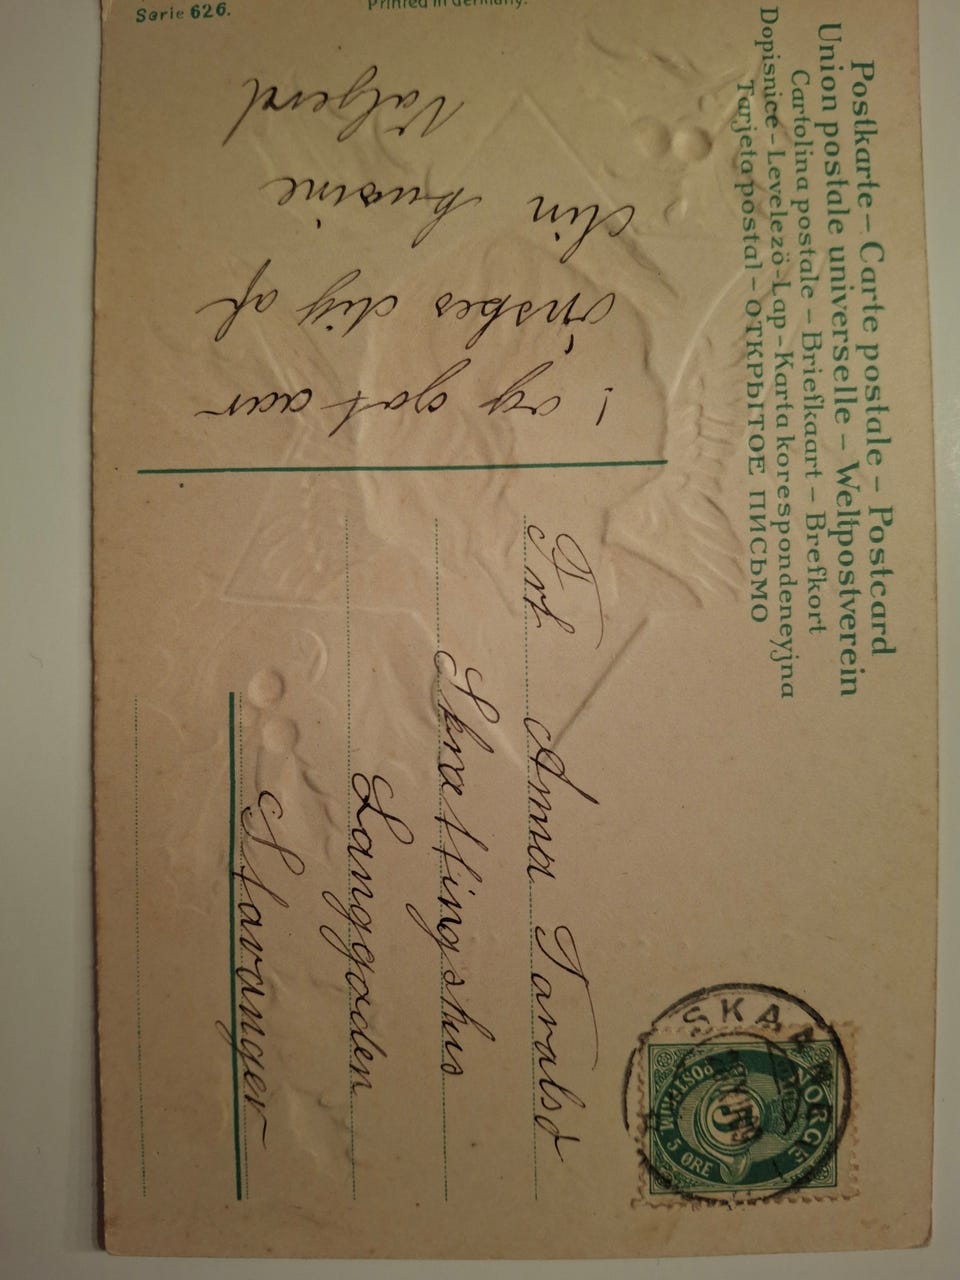 Postkarte – Carte postale – Postcard
Union postale universelle – Weltpostverein
Cartolina postale – Briefkaart – Brefkort
Dopisnice – Levelező-Lap – Karta korespondencyjna
Tarjeta postal – ОТКРЫТОЕ ПИСЬМО
! og got aar
önskes dig af
din kusine
Valgerd
Frk Anna Taralsö
Skrattingshus
Langgaden
Stavanger
NORGE
POSTFRIM
5 ØRE
5
SKAA
Serie 626.
Printed in Germany.